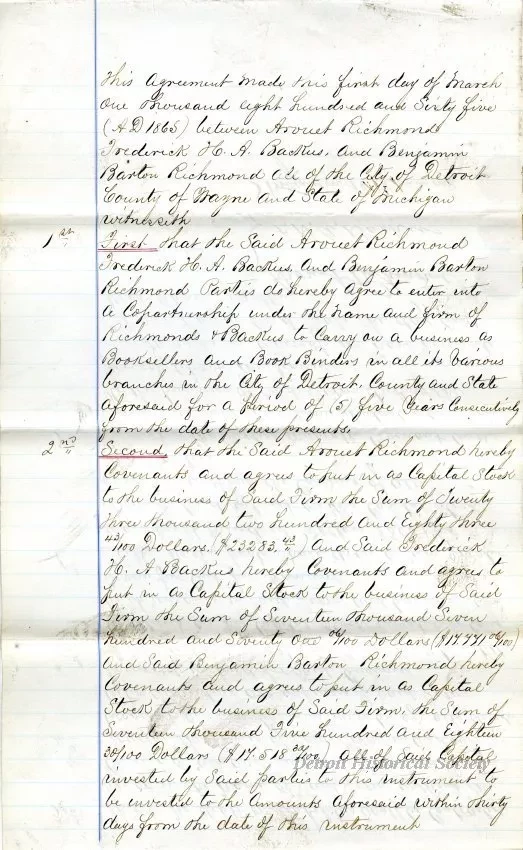 This Agreement made this first day of March
One thousand eight hundred and Sixty five
(A.D 1865) between Arouet Richmond
Frederick H. A. Backus, and Benjamin
Barton Richmond all of the City of Detroit
County of Wayne and State of Michigan
witnesseth
1st First that the Said Arouet Richmond
Frederick H. A. Backus, and Benjamin Barton
Richmond Parties do hereby agree to enter into
a Copartnership under the name and firm of
Richmonds & Backus to Carry on a business as
Booksellers and Book Binders in all its Various
branches in the City of Detroit, County and State
aforesaid for a period of (5) five Years Consecutively
from the date of these presents.
2nd Second, that the Said Arouet Richmond hereby
Covenants and agrees to put in as Capital Stock
to the business of Said Firm the Sum of Twenty
three thousand two hundred and Eighty three
43/100 Dollars. $23283.43/ ) And Said Frederick
H. A Backus hereby Covenants and agrees to
put in as Capital Stock to the business of Said
Firm the Sum of Seventeen thousand Seven
hundred and Seventy One 06/100 Dollars ($17.771 06/100)
and Said Benjamin Barton Richmond hereby
Covenants and agrees to put in as Capital
Stock to the business of Said Firm, the Sum of
Seventeen thousand Five hundred and Eighteen
30/100 Dollars ($17.518 30/100) all of Said Capital
Detroit Historical Society
invested by Said parties to this instrument to
be invested to the Amounts aforesaid within thirty
days from the date of this instrument